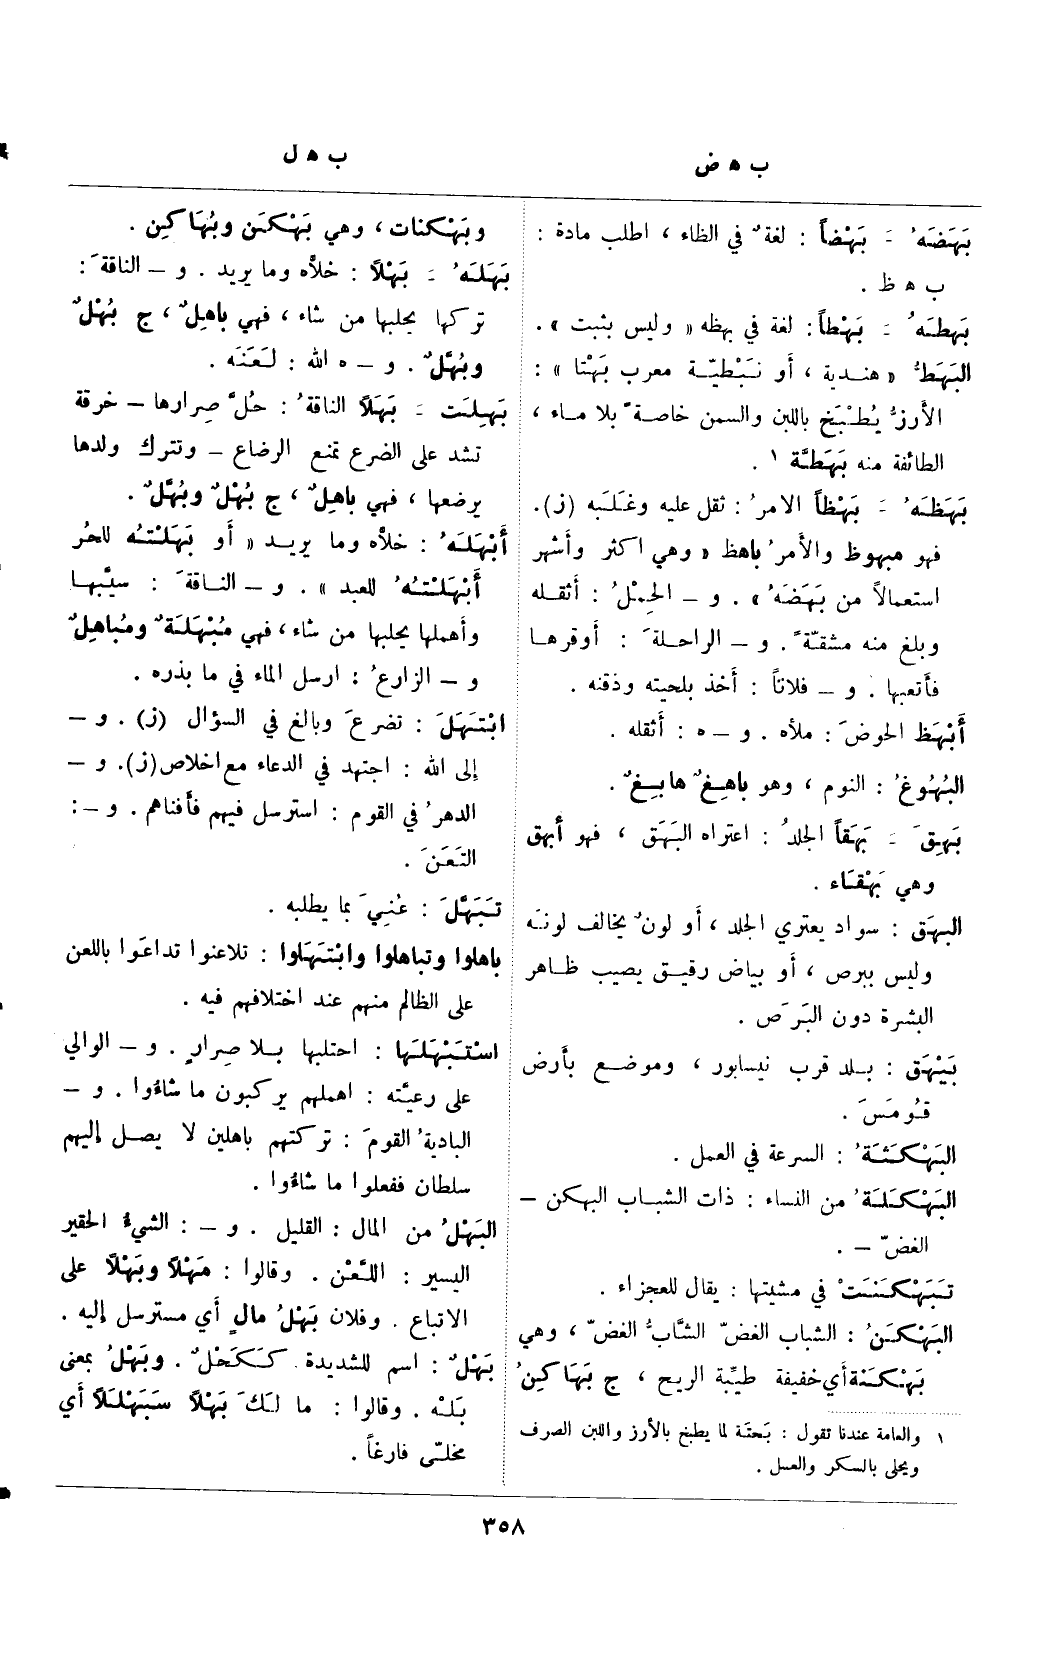 ب ه ض
ب ه ل
بَهَضَهُ ـَ بَهْضاً : لغةٌ في الظاء ، اطلب مادة :
ب ه ظ .
بَهَطَهُ ـَ بَهْطاً : لغة في بهظه « وليس بثبت » .
البَهَطُّ « هندية ، أَو نَبَطيّة معرب بَهْتا » :
الأَرزُّ يُطْبَخ باللبن والسمن خاصةً بلا ماء ،
الطائفة منه بَهَطَّة ١ .
بَهَظَهُ ـَ بَهْظاً الامرُ : ثقل عليه وغَلَبه (ز).
فهو مبهوظ والأمرُ باهظ « وهي اكثر وأشهر
استعمالاً من بَهَضَهُ » . و – الحِمْلُ : أثقله
وبلغ منه مشقةً . و – الراحلةَ : أوقرها
فأتعبها . و – فلاناً : أخذ بلحيته وذقنه .
أَبْهَظ الحوضَ : ملأه . و – ه : أثقله .
البُهُوغُ : النوم ، وهو باهِغٌ هابِغٌ .
بَهِقَ ـَ بَهَقاً الجلدُ : اعتراه البَهَق ، فهو أبهق
وهي بَهْقَاء .
البهَق : سواد يعتري الجلد ، أَو لونٌ يخالف لونَه
وليس ببرص ، أَو بياض رقيق يصيب ظاهر
البشرة دون البَرَص .
بَيْهَق : بلد قرب نيسابور ، وموضع بأرض
قُومَسَ .
البَهْكَثَةُ : السرعة في العمل .
البَهْكَلَةُ من النساء : ذات الشباب البهكن –
الغضّ – .
تَبَهْكَنَتْ في مشيتها : يقال للعجزاء .
البَهْكَنُ : الشباب الغضّ الشَّابُّ الغضّ ، وهي
بَهْكَنَة أي خفيفة طيِّبة الريح ، ج بَهَاكِنُ
١ والعامة عندنا تقول : بَحتَة لما يطبخ بالأرز واللبن الصرف
ويحلى بالسكر والعسل .
وبَهْكَنات ، وهي بَهْكَمَن وبُهَاكِن .
بَهَلَهُ ـَ بَهْلاً : خلاَّه وما يريد . و – الناقةَ :
تركها يحلبها من شاء ، فهي باهِلٌ ، ج بُهْلٌ
وبُهَّلٌ . و – ه الله : لَعَنَه .
بَهِلَت ـَ بَهَلاً الناقةُ : حُلَّ صِرارها – خرقة
تشد على الضرع تمنع الرضاع – وتترك ولدها
يرضعها ، فهي باهِلٌ ، ج بُهْلٌ وبُهَّلٌ .
أَبْهَلَهُ : خلاَّه وما يريد « أَو بَهَلْتُه للحُر
أَبْهَلْتُهُ للعبد » . و – الناقةَ : سيَّبها
وأهملها يحلبها من شاء ، فهي مُبْهَلَةٌ ومُباهِلٌ
و – الزارعُ : ارسل الماء في ما بذره .
ابْتَهَلَ : تضرعَ وبالغ في السؤال (ز) . و –
إلى الله : اجتهد في الدعاء مع اخلاص (ز). و –
الدهرُ في القوم : استرسل فيهم فأفناهم . و – :
التَعَنَ .
تَبَهَّلَ : عُنِيَ بما يطلبه .
باهلوا وتباهلوا وابْتَهَلوا : تلاعنوا تداعَوا باللعن
على الظالم منهم عند اختلافهم فيه .
اسْتَبْهَلَها : احتلبها بلا صِرارٍ . و – الوالي
على رعيَّته : اهملهم يركبون ما شاؤوا . و –
الباديةُ القومَ : تركتهم باهلين لا يصل إليهم
سلطان ففعلوا ما شاؤوا .
البَهْلُ من المال : القليل . و – : الشيءُ الحقير
اليسير : اللَّعْن . وقالوا : مَهْلاً وبَهْلاً على
الاتباع . وفلان بَهْلُ مالٍ أي مسترسل إليه .
بَهْلٌ : اسم للشديدة كَكَحْلٌ . وبَهْلُ بمعنى
بَلْه . وقالوا : ما لَكَ بَهْلاً سَبَهْلَلاً أي
مخلّى فارغاً .
٣٥٨